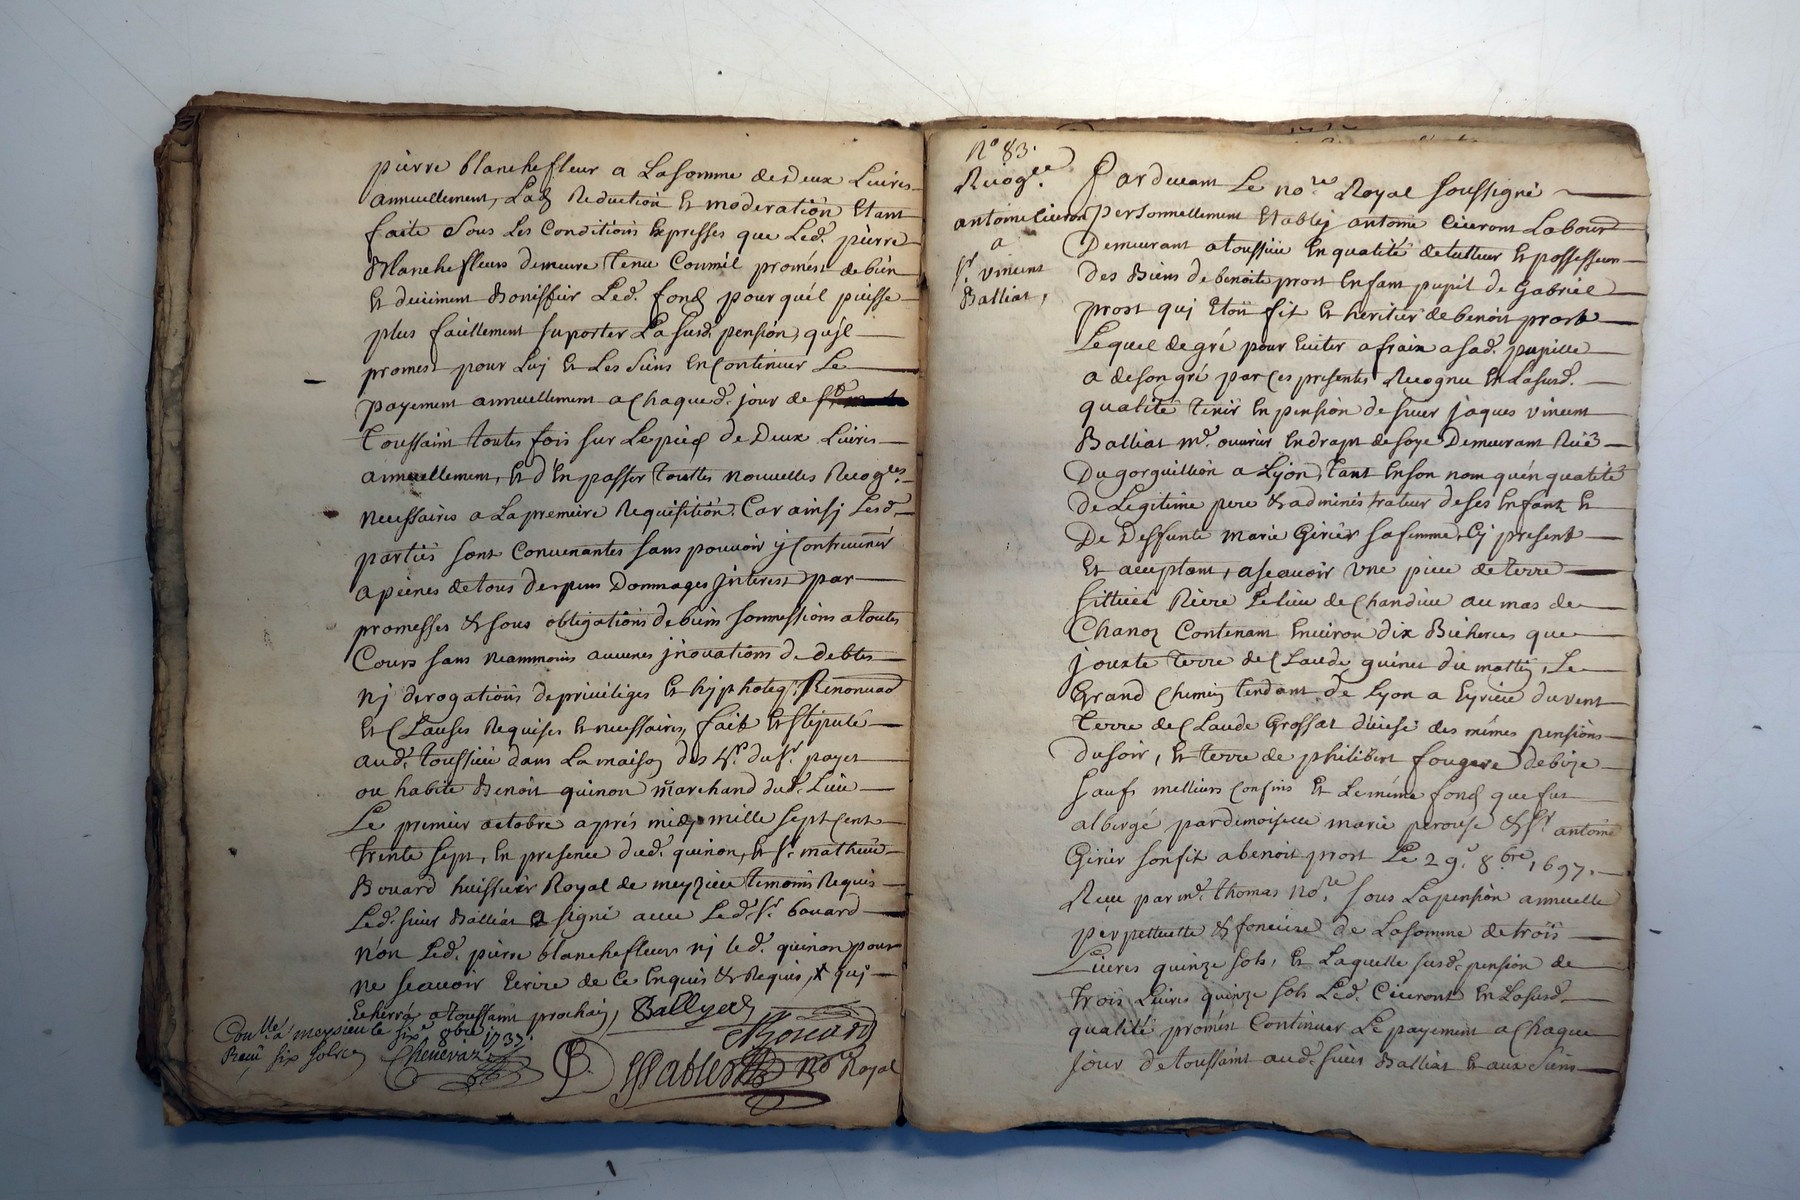 pierre blanchefleur a La somme des deux Livres
annuellement, Lad. Reduction Et moderation Etant
faite Sous Les Conditions Expresses que Led. pierre
Blanchefleurs demeure tenu Comme il promest de bien
Et duëment Boniffier Led. fond pour quél puisse
plus facillement suporter La susd. pension, qu'il
promest pour Luj Et Les Siens En Continuer Le
payement annuellement a Chaque d. jour de
toussaint toutes fois sur Le pied de Deux Livres
annuellement, Et d'En passer touttes nouvelles Recog.les
necessaires a La premiere Requisition. Car ainsj Lesd.
parties sont Convenantes sans pouvoir ÿ Contrevenir
a peines de tous despens Dommages jnterest par
promesses & sous obligations de biens sommissions a toutes
Cours sans neammoins aucunes jnovations de debtes
nj derogations de privileges Et hÿphoteq. Renonvad
Et Clauses Requises Et necessaires, fait Et stipulé
aud. toussieu dans La maison des hr. du Sr. payet
ou habite Benoit quinon marchand dud. Lieu
Le premier octobre aprés midy mille sept Cent
trente sept, En presence dud. quinon, Et Sr. mathieu
Bouard huissier Royal de meyzieu temoins Requis
Led. sieur Balliat a signé avec Led. Sr. bouard
non Led. pierre blanchefleurs nj led. quinon pour
ne scavoir Ecrire de Ce Enquis & Requis, quj
Echerra a toussaint prochain, Ballyat
Bouard
Con.lle a meysieu le six 8bre 1737.
Receu six sols Chenevaz
Sablet no.re Royal
N.o 83.
Recog.ce
antoine Civeron
a
Sr. vincent
Balliat,
Pardevant Le no.re Royal soussigné
personnellement Etablij antoine Civeront Labour
Demeurant a toussieu En qualité de tutteur Et possesseur
des Biens de benoite prost Enfant pupil de Gabriel
prost quj Etoit fit Et heritier de benoit prost
Lequel de gré pour Eviter a fraix a sad. pupille
a de son gré par Ces presentes Recognu En La susd.
qualité tenir En pension de sieur jaques vincent
Balliat md. ouvrier En drapt de soye Demeurant Rüe
Du gorguillion a Lÿon, tant En son nom qu'en qualité
de Legitime pere & administrateur de ses Enfant Et
De Deffunte marie Girier sa femme, Cy present
Et acceptant, a scavoir vne piece de terre
sittuée Riere Le lieu de Chandieu au mas de
Chanoz Contenant Environ dix Bicherées que
jouxte terre de Claude quinet du mattin, Le
Grand Chemin tendant de Lyon a Eyrieu du vent
terre de Claude Grossat düieste des mémes pensions
du soir, Et terre de philibert fougere de bize
saufs meillieurs Confins Et Le méme fond que fut
albergé par demoiselle marie perouse & Sr. antoine
Girier son fit a benoit prost Le 29.e 8bre 1697.
Receu par me. thomas no.re, sous La pension annuelle
perpettuelle & fonciere de La somme de trois
Livres quinze sols, Et Laquelle susd. pension de
trois Livres quinze sols Led. Civeront En La susd.
qualité promést Continuer Le payement a Chaque
jour de toussaint aud. sieur Balliat Et aux Siens